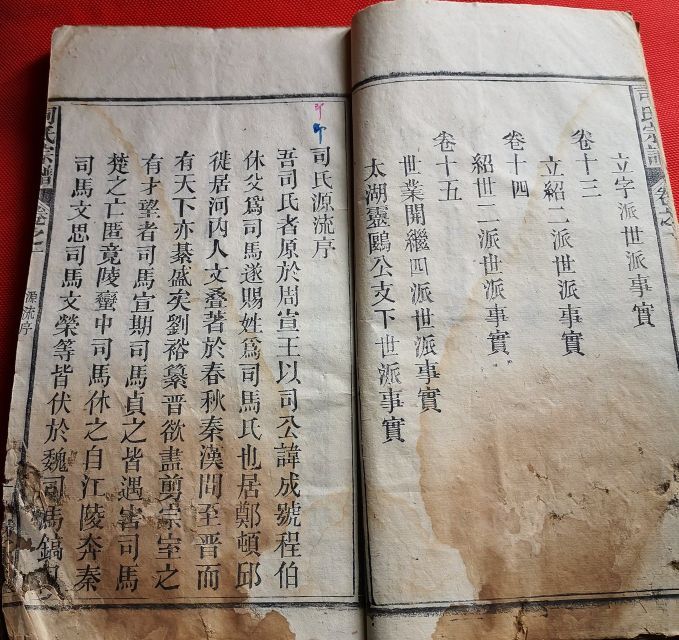 司氏宗譜 卷之一
立字派世派事實
卷十三
立紹二派世派事實
卷十四
紹世二派世派事實
卷十五
世業開繼四派世派事實
太湖靈鷗公支下世派事實
司氏源流序
吾司氏者原於周宣王以司公諱成號程伯
休父爲司馬遂賜姓爲司馬氏也居鄭頓邱
徙居河内人文叠著於春秋秦漢間至晉而
有天下亦綦盛矣劉裕纂晉欲盡剪宗室之
有才望者司馬宣期司馬貞之皆遇害司馬
楚之亡匿竟陵蠻中司馬休之自江陵奔秦
司馬文思司馬文榮等皆伏於魏司馬鎬
司氏宗譜 卷之一 源流序